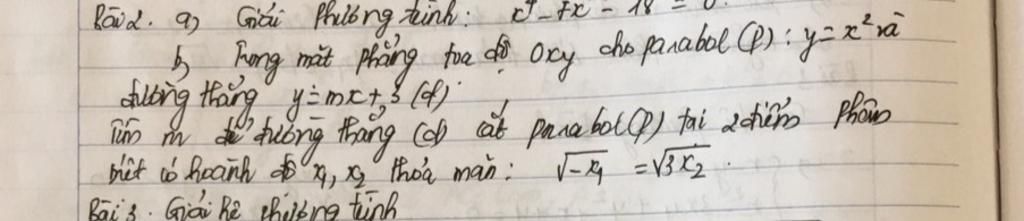 Bài 2. a) Giải phương trình: x⁴ - 7x - 18 = 0
b) Trong mặt phẳng tọa độ Oxy cho parabol (P): y = x² và
đường thẳng y = mx + 3 (d)
Tìm m để đường thẳng (d) cắt parabol (P) tại 2 điểm phân
biệt có hoành độ x₁, x₂ thỏa mãn: √-x₁ = √3x₂.
Bài 3. Giải hệ phương trình